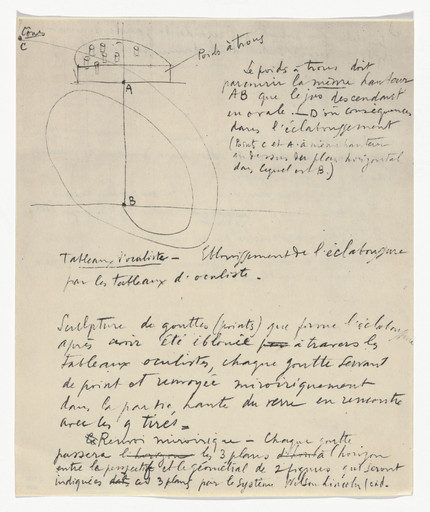 Cours
C
Poids à trous
A
B
Le poids à trous doit
parcourir la même hauteur
AB que le jus descendant
en ovale. — D'où conséquences
dans l'éclaboussement
(Point C et A à même hauteur
au dessus du plan horizontal
dans lequel est B.)
Tableaux d'oculistes — Eblouissement de l'éclaboussure
par les tableaux d'oculiste.
Sculpture de gouttes (points) que forme l'éclaboussure
après avoir été éblouie à travers les
tableaux oculistes, chaque goutte servant
de point et renvoyée miroiriquement
dans la partie haute du verre en rencontre
avec les 9 tirés =
Renvoi miroirique — Chaque goutte
passera les 3 plans à l'horizon
entre la perspectif et le géométral de 2 figures qui seront
indiquées ces 3 plans par le système Wilson Lincoln (c.à.d.